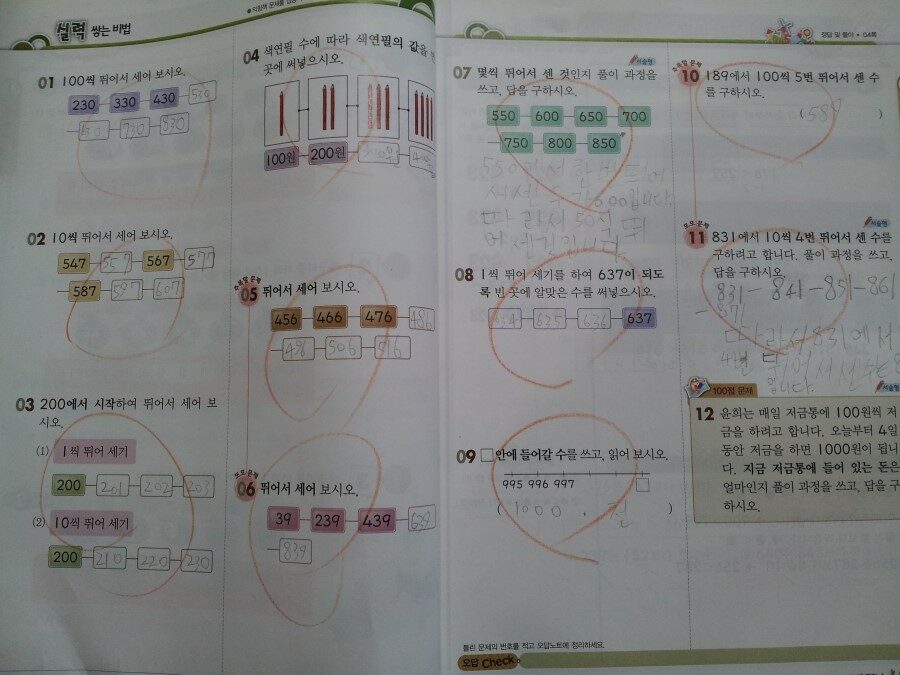 실력 쌓는 비법
01 100씩 뛰어서 세어 보시오.
230 330 430 530
730 830
02 10씩 뛰어서 세어 보시오.
547 557 567 577
587 597 607
03 200에서 시작하여 뛰어서 세어 보
시오.
(1) 1씩 뛰어 세기
200 201 202 203
(2) 10씩 뛰어 세기
200 210 220 230
04 색연필 수에 따라 색연필의 값을
곳에 써넣으시오.
100원 200원
쇼킹맘 문제
05 뛰어서 세어 보시오.
456 466 476 486
496 506 516
06 뛰어서 세어 보시오.
39 239 439 639
839
정답 및 풀이 • 04쪽
서술형
07 몇씩 뛰어서 센 것인지 풀이 과정을
쓰고, 답을 구하시오.
550 600 650 700
750 800 850
550에서 한 번 뛰어
서 센 수가 600입니다.
따라서 50씩 뛰
어 센 것입니다.
08 1씩 뛰어 세기를 하여 637이 되도
록 빈 곳에 알맞은 수를 써넣으시오.
634 635 636 637
09 □안에 들어갈 수를 쓰고, 읽어 보시오.
995 996 997 □
( 1000 , 천 )
10 189에서 100씩 5번 뛰어서 센 수
를 구하시오.
( )
서술형
11 831에서 10씩 4번 뛰어서 센 수를
구하려고 합니다. 풀이 과정을 쓰고,
답을 구하시오.
831 - 841 - 851 - 861
- 871
따라서 831에서
4번 뛰어서 센 수는
입니다.
100점 문제
서술형
12 윤희는 매일 저금통에 100원씩 저
금을 하려고 합니다. 오늘부터 4일
동안 저금을 하면 1000원이 됩니
다. 지금 저금통에 들어 있는 돈은
얼마인지 풀이 과정을 쓰고, 답을 구
하시오.
틀린 문제의 번호를 적고 오답노트에 정리하세요.
오답 Check